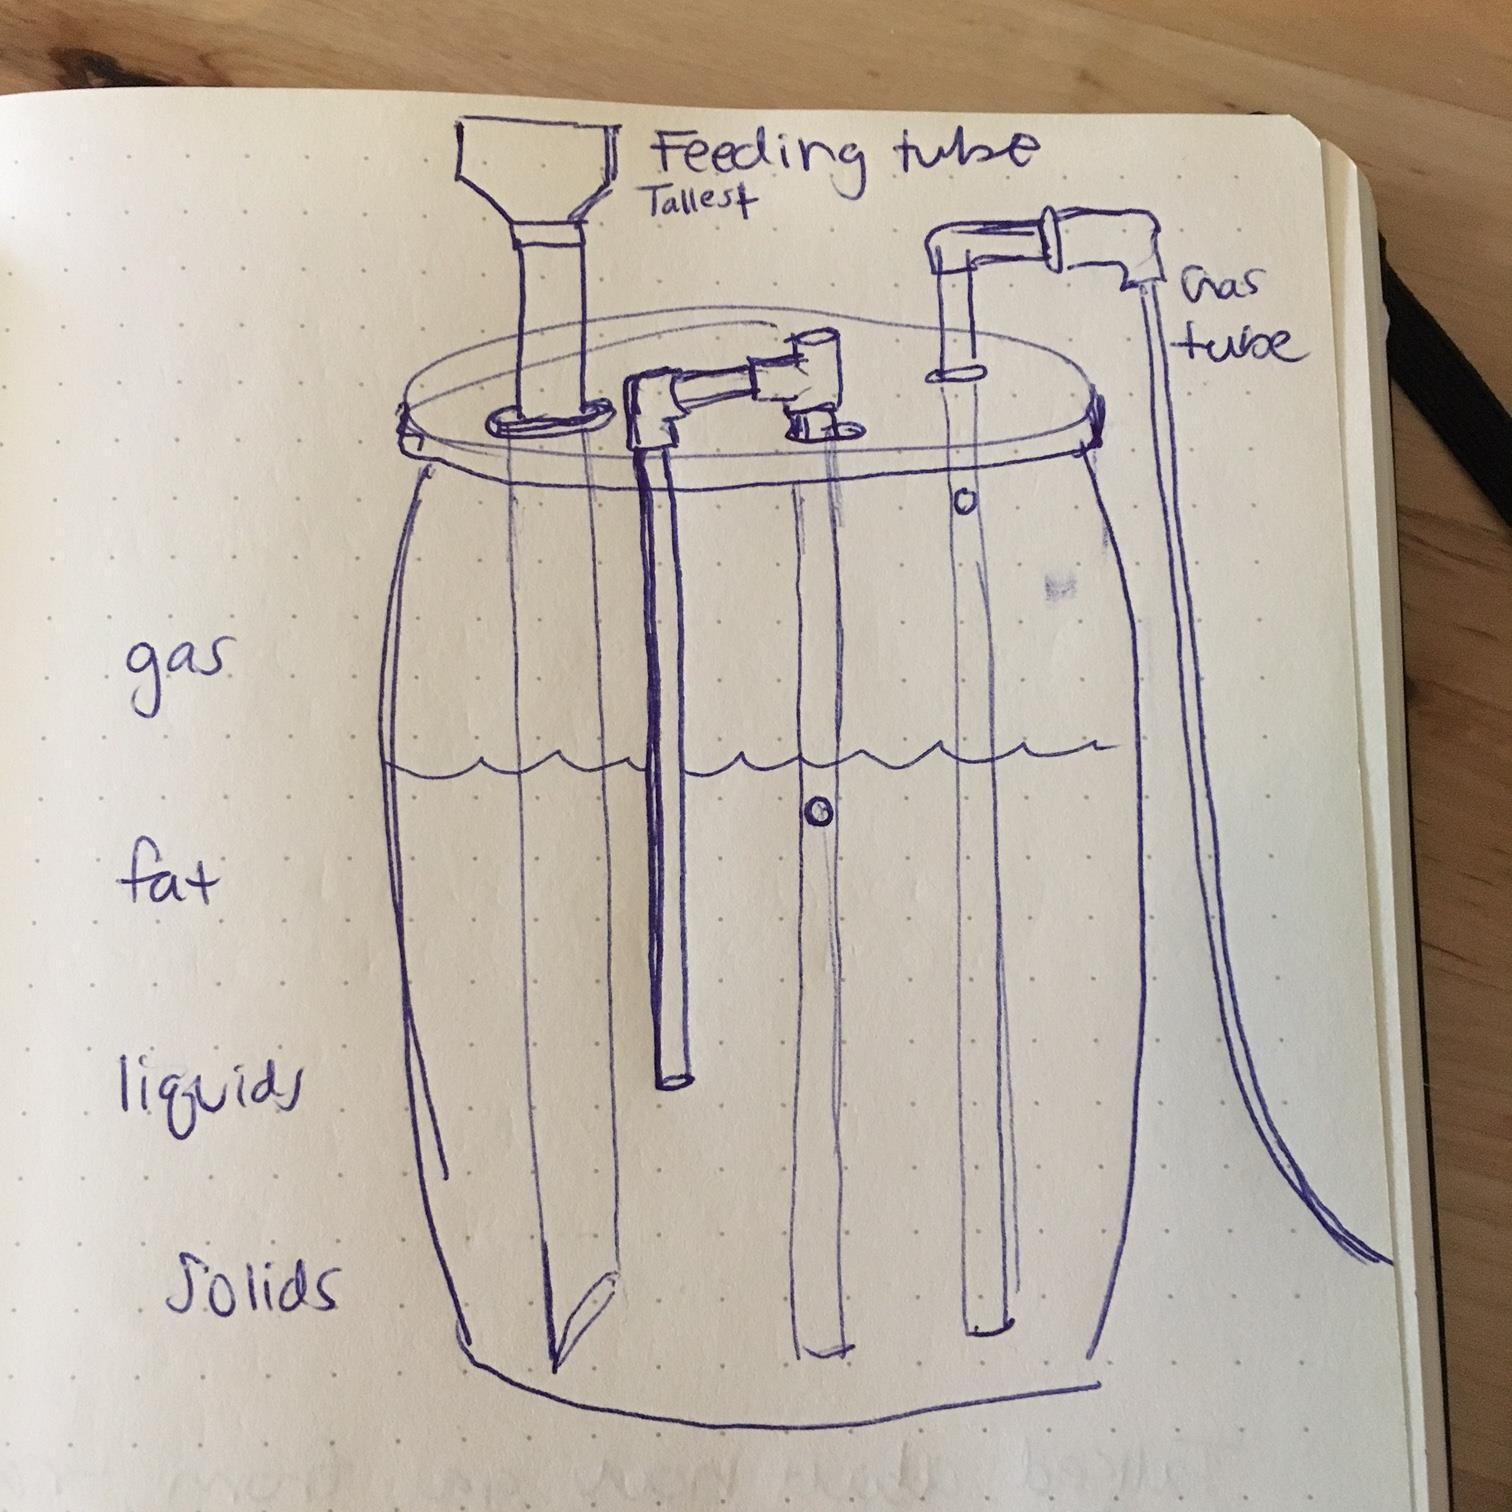 Feeding tube
Tallest
Gas
tube
gas
fat
liquids
Solids